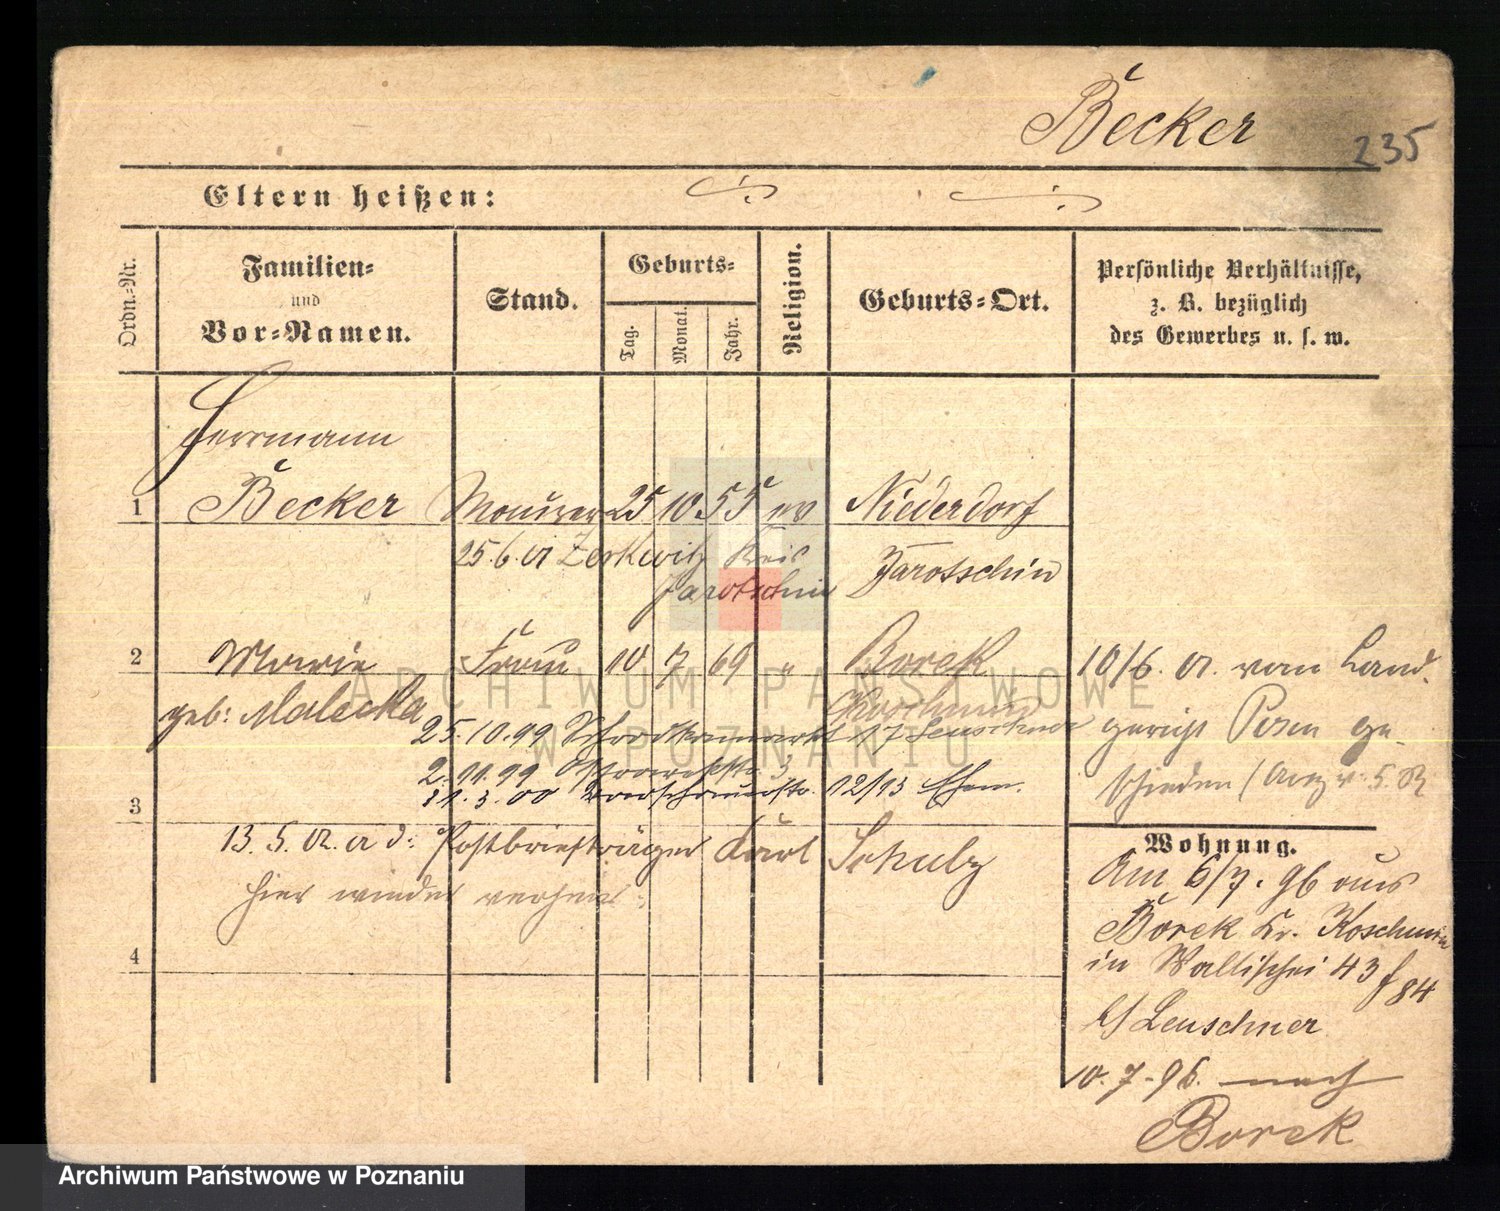 Becker
235
Eltern heißen:
Ordn.-Nr.
Familien-
und
Vor-Namen.
Stand.
Geburts-
Tag.
Monat.
Jahr.
Religion.
Geburts-Ort.
Persönliche Verhältnisse,
z. B. bezüglich
des Gewerbes u. s. w.
Herrmann
1 Becker Maurer 25 10. 55 ev Niederdorf
25.6. a Zerkwitz Kreis Jarotschin
Jarotschin
2 Marie Frau 10 7 69 " Borek
geb: Malecka
Koschmin
10/6. 01. vom Land-
gericht Posen ge-
schieden
25.10.99 17 Leuschner
2.11.99
31.3.00 12/13 Ehem.
3
13.5.02. a d: Postbriefträger Karl Schulz
hier wieder
4
Wohnung.
Am 6/7. 96 aus
Borek Kr. Koschmin
in Wallischei 43
84
b/ Leuschner
10.7.96. nach
Borek
ARCHIWUM PAŃSTWOWE
W POZNANIU
Archiwum Państwowe w Poznaniu